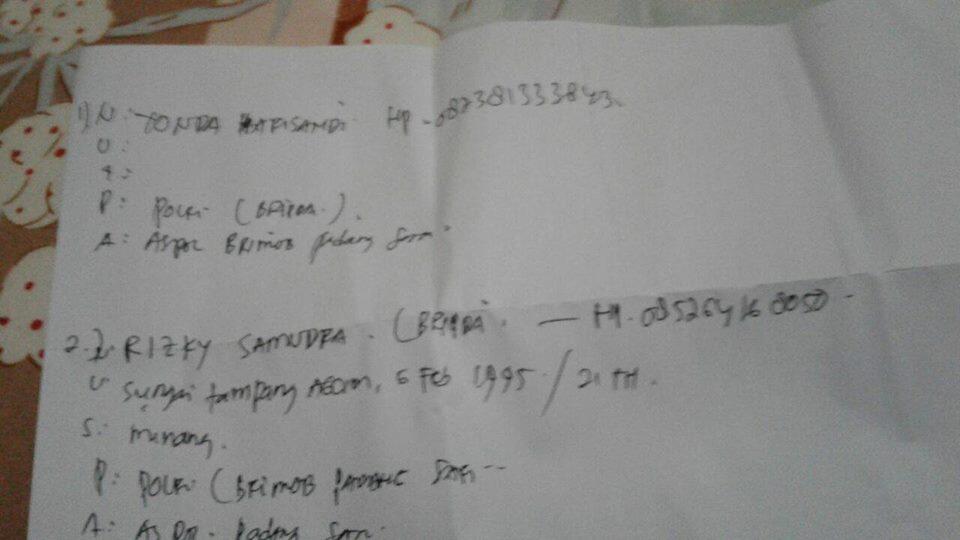 1) N: TONDA HARISANDI HP. 082381333843.
U:
S:
P: POLRI (BRIPDA.).
A: ASPOL BRIMOB Padang Sarai
2. N. RIZKY SAMUDRA. (BRIPDA. — HP. 085264168050 -
U Sungai tampang AGAM, 6 Feb 1995 / 21 TH.
S: minang.
P: POLRI (BRIMOB PADANG SARAI --
A: ASPOL. Padang Sarai.